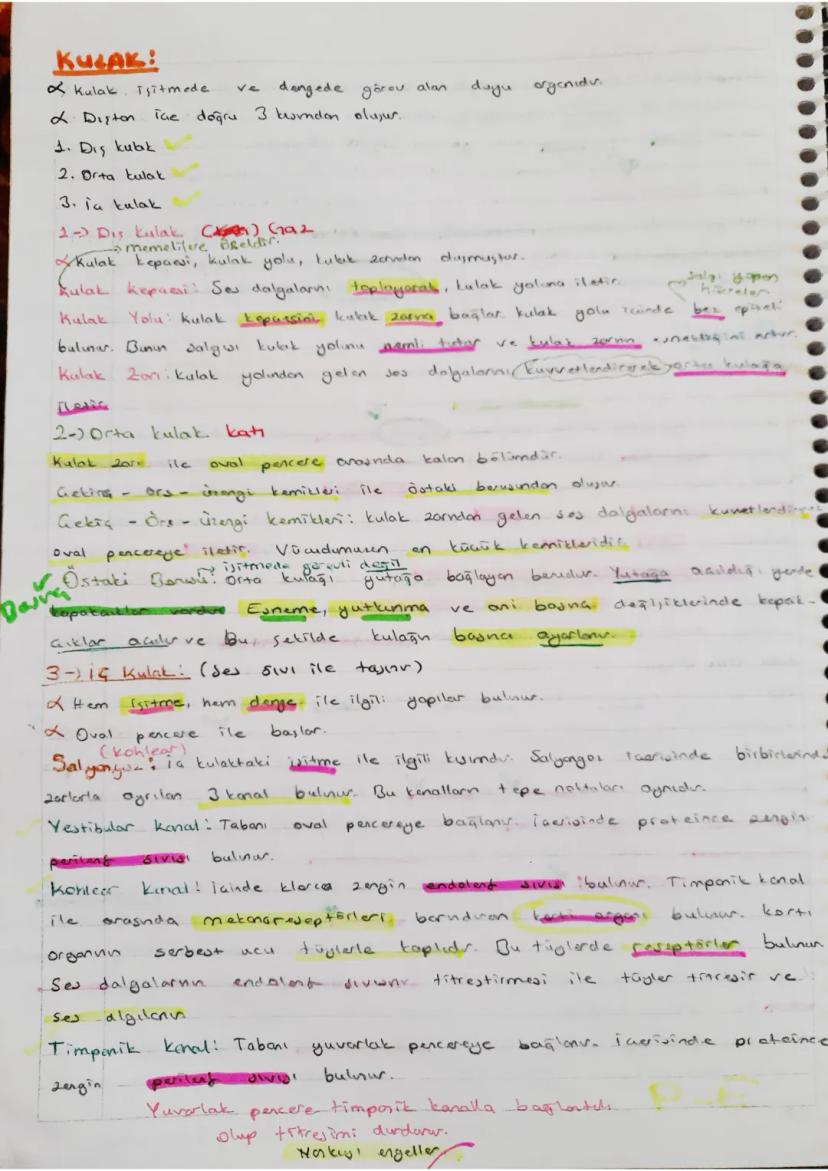 KULAK:
∝ Kulak, işitmede ve dengede görev alan duyu organıdır.
∝ Dıştan içe doğru 3 kısımdan oluşur.
1. Dış kulak
2. Orta kulak
3. İç kulak
1-) Dış kulak (Gaz
→ memelilere özeldir.
∝ Kulak kepçesi, kulak yolu, kulak zarından oluşmuştur.
Kulak kepçesi: Ses dalgalarını toplayarak, kulak yoluna iletir.
Salgı yapan hücreler
Kulak Yolu: Kulak kepçesini kulak zarına bağlar. kulak yolu içinde bez epiteli
bulunur. Bunun salgısı kulak yolunu nemli tutar ve kulak zarının esnekliğini artırır.
Kulak Zarı: Kulak yolundan gelen ses dalgalarını kuvvetlendirerek orta kulağa
iletir.
2-) Orta kulak katı
Kulak zarı ile oval pencere arasında kalan bölümdür.
Çekiç - örs - üzengi kemikleri ile östaki borusundan oluşur.
Çekiç - Örs - Üzengi kemikleri: kulak zarından gelen ses dalgalarını kuvvetlendirerek
oval pencereye iletir. Vücudumuzun en küçük kemikleridir.
→ işitmede görevli değil
Basınç Östaki Borusu: Orta kulağı yutağa bağlayan borudur. Yutağa açıldığı yerde
kapakçıklar vardır Esneme, yutkunma ve ani basınç değişiklerinde kapak-
çıklar açılır ve Bu şekilde kulağın basıncı ayarlanır.
3-) İç Kulak: (Ses sıvı ile taşınır)
∝ Hem işitme, hem denge ile ilgili yapılar bulunur.
∝ Oval pencere ile başlar.
(kohlear)
Salyangoz: iç kulaktaki işitme ile ilgili kısımdır. Salyangoz içerisinde birbirlerinden
zarlarla ayrılan 3 kanal bulunur. Bu kanalların tepe noktaları aynıdır.
Vestibular Kanal: Tabanı oval pencereye bağlanır. içerisinde proteince zengin
perilenf sıvısı bulunur.
Kohlear Kanal: içinde klorca zengin endolenf sıvısı bulunur. Timponik kanal
ile arasında mekanoreseptörleri barındıran korti organı bulunur. korti
organının serbest ucu tüylerle kaplıdır. Bu tüylerde reseptörler bulunur
Ses dalgalarının endolenf sıvısını titreştirmesi ile tüyler titreşir ve
ses algılanır.
Timponik Kanal: Tabanı yuvarlak pencereye bağlanır. içerisinde proteince
zengin perilenf sıvısı bulunur.
P-E
Yuvarlak pencere timponik kanalla bağlantılı
olup titreşimi durdurur.
Yankıyı engeller